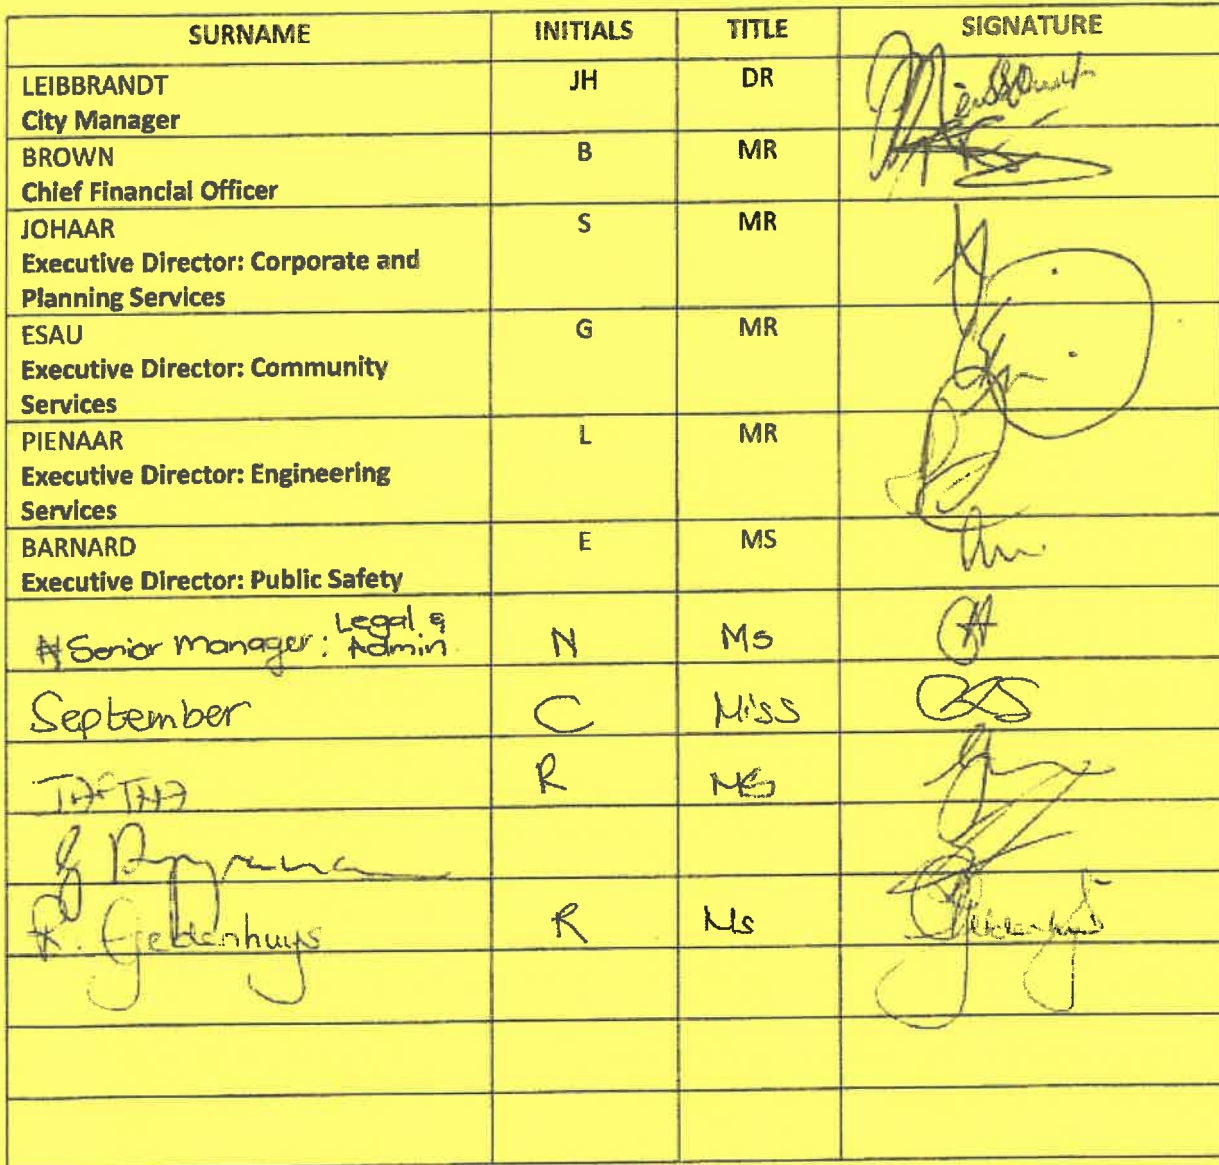 SURNAME INITIALS TITLE SIGNATURE
LEIBBRANDT JH DR
City Manager
BROWN B MR
Chief Financial Officer
JOHAAR S MR
Executive Director: Corporate and
Planning Services
ESAU G MR
Executive Director: Community
Services
PIENAAR L MR
Executive Director: Engineering
Services
BARNARD E MS
Executive Director: Public Safety
Senior Manager: Legal & Admin N Ms
September C Miss
R MS
R. Geldenhuys R Ms